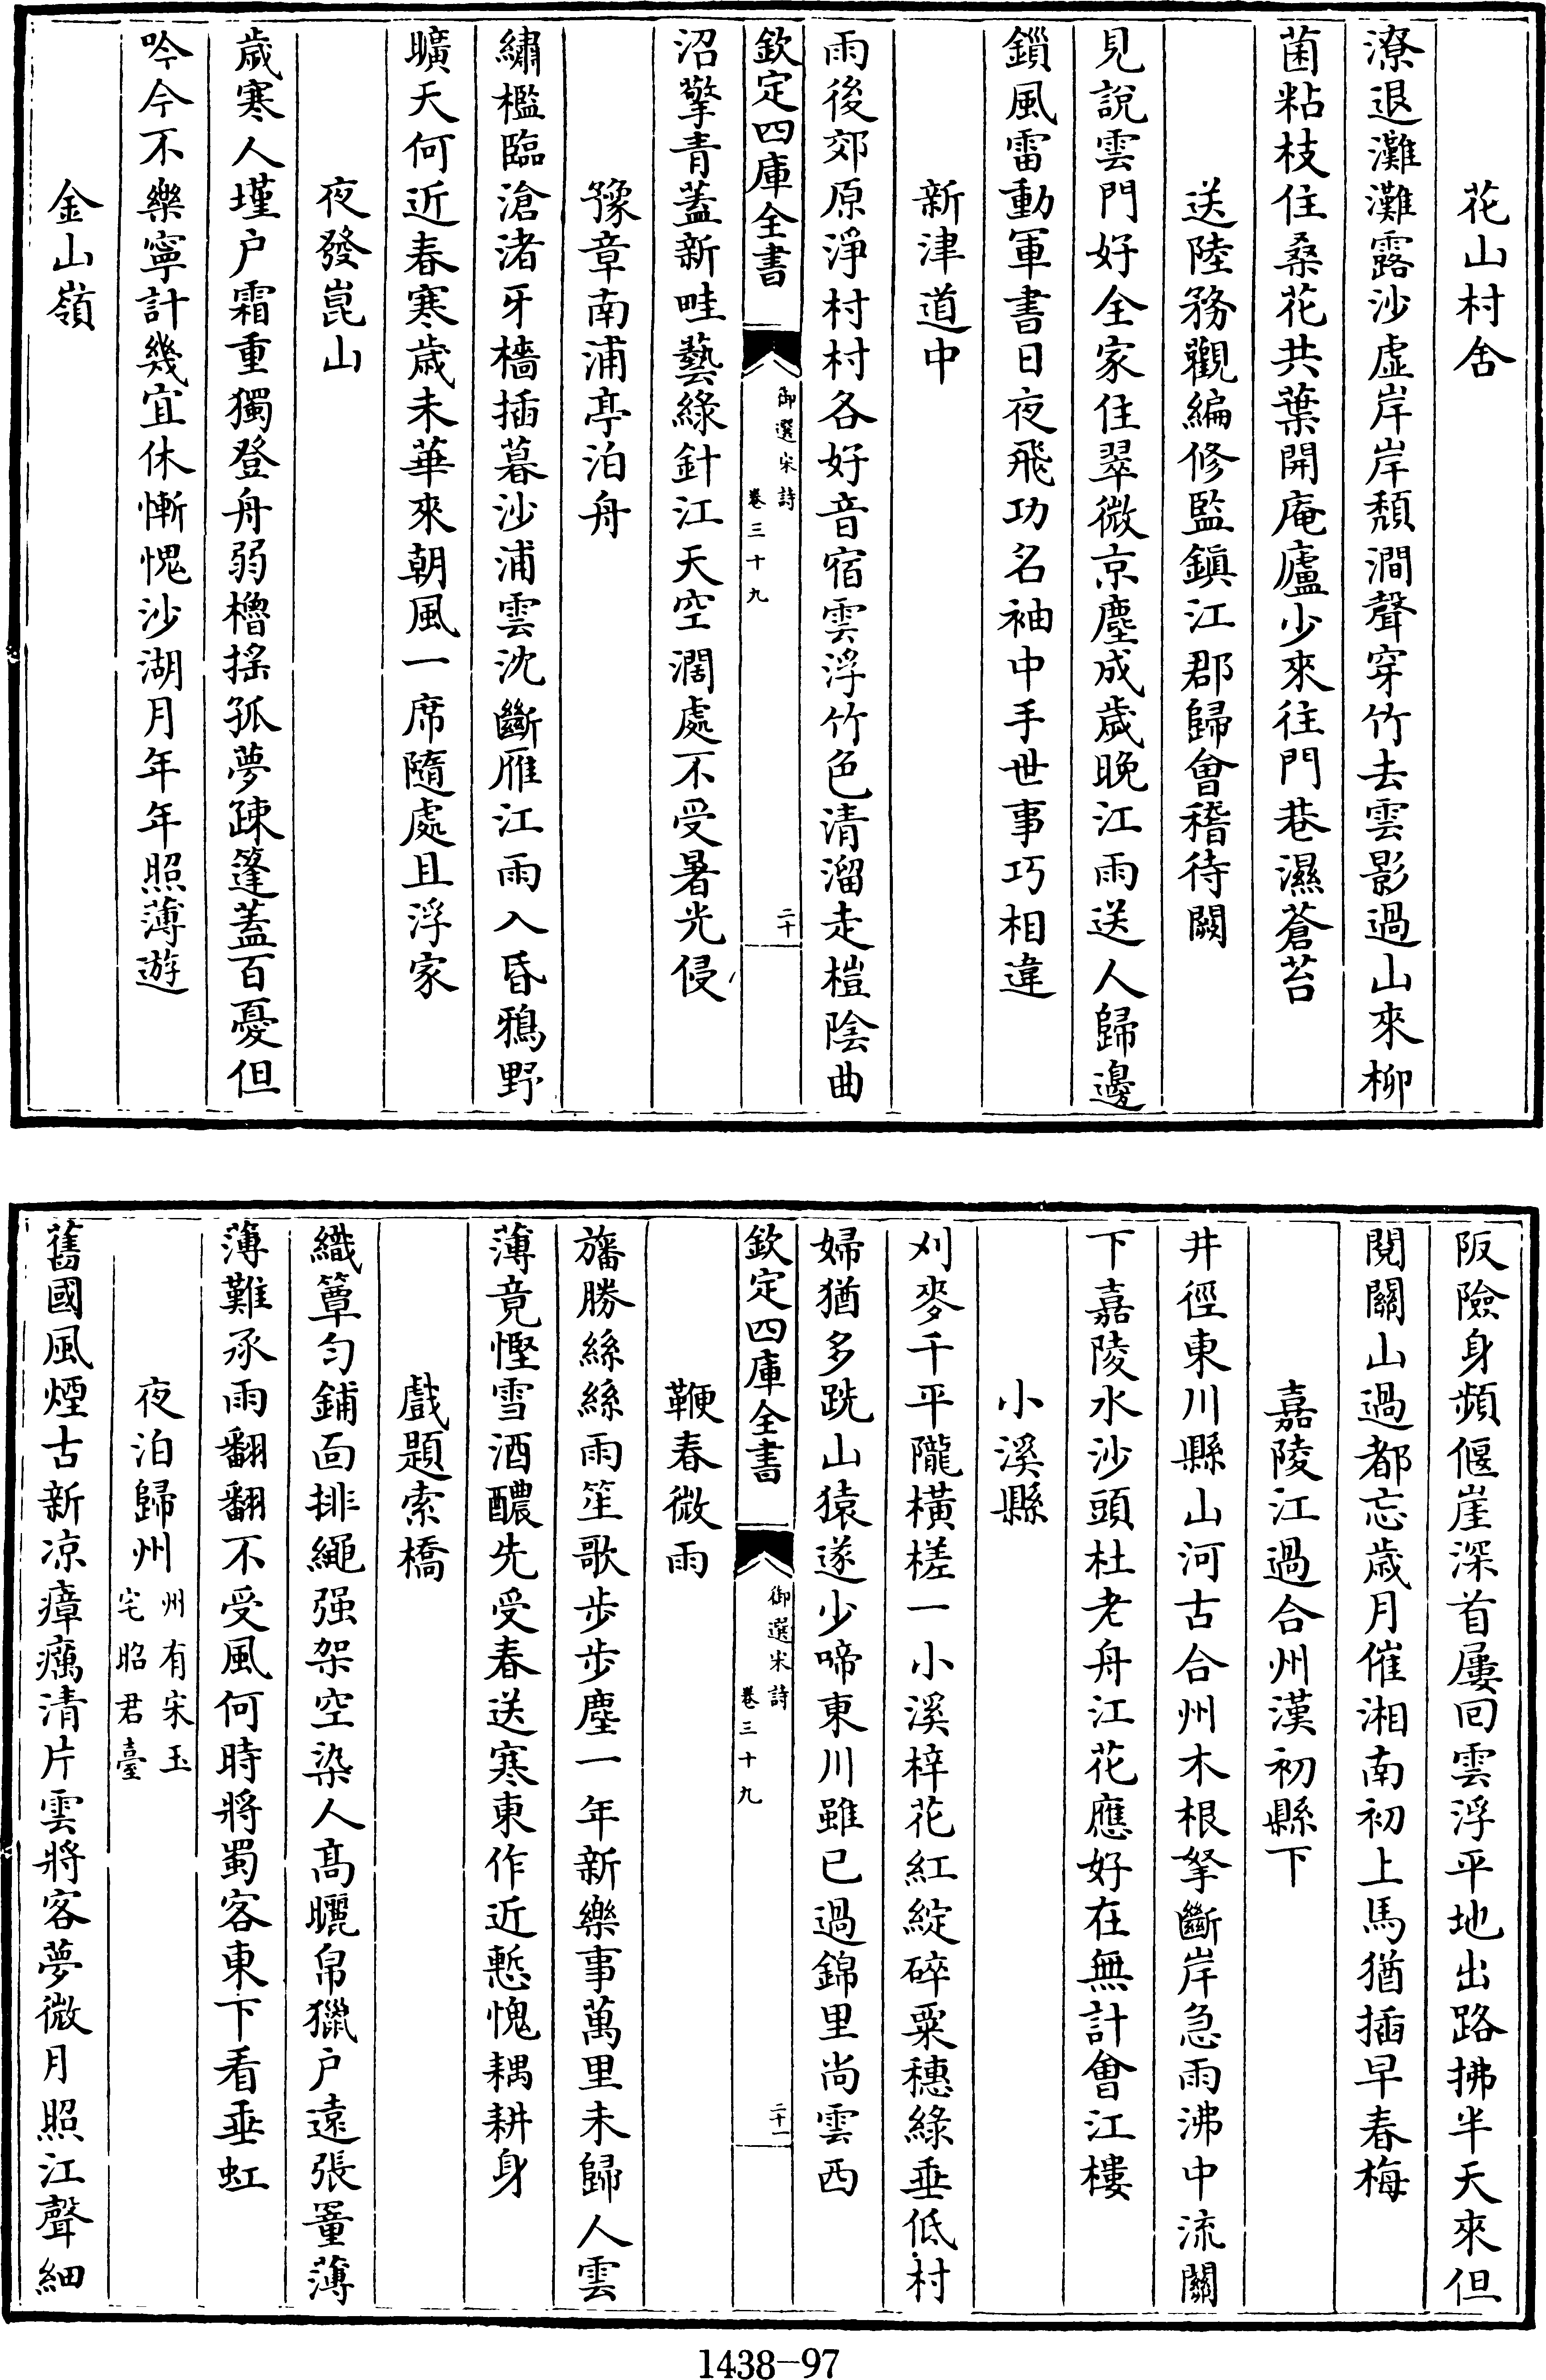 花山村舍
潦退灘灘露沙虚岸岸頽澗聲穿竹去雲影過山來柳
菌粘枝住桑花共葉開庵廬少來往門巷濕蒼苔
送陸務觀編修監鎮江郡歸會稽待闕
見說雲門好全家住翠微京塵成歲晚江雨送人歸邊
鎖風雷動軍書日夜飛功名袖中手世事巧相違
新津道中
雨後郊原淨村村各好音宿雲浮竹色清溜走榿陰曲
欽定四庫全書
御選宋詩
卷三十九
二十
沼擎青蓋新畦藝綠針江天空濶處不受暑光侵
豫章南浦亭泊舟
繡檻臨滄渚牙檣插暮沙浦雲沈斷雁江雨入昏鴉野
曠天何近春寒歲未華來朝風一席隨處且浮家
夜發崑山
歲寒人墐户霜重獨登舟弱櫓揺孤夢疎篷蓋百憂但
吟今不樂寧計幾宜休慚愧沙湖月年年照薄遊
金山嶺
阪險身頻偃崖深首屢回雲浮平地出路拂半天來但
閱關山過都忘歲月催湘南初上馬猶插早春梅
嘉陵江過合州漢初縣下
井徑東川縣山河古合州木根拏斷岸急雨沸中流關
下嘉陵水沙頭杜老舟江花應好在無計會江樓
小溪縣
刈麥千平隴橫槎一小溪梓花紅綻碎粟穗綠垂低村
婦猶多跣山猿遂少啼東川雖已過錦里尚雲西
欽定四庫全書
御選宋詩
卷三十九
二十一
鞭春微雨
旛勝絲絲雨笙歌步步塵一年新樂事萬里未歸人雲
薄竟慳雪酒醲先受春送寒東作近慙愧耦耕身
戲題索橋
織簟匀鋪面排繩强架空染人髙曬帛獵户遠張罿薄
薄難承雨翻翻不受風何時將蜀客東下看垂虹
夜泊歸州
州有宋玉
宅昭君臺
舊國風煙古新凉瘴癘清片雲將客夢微月照江聲細
1438-97